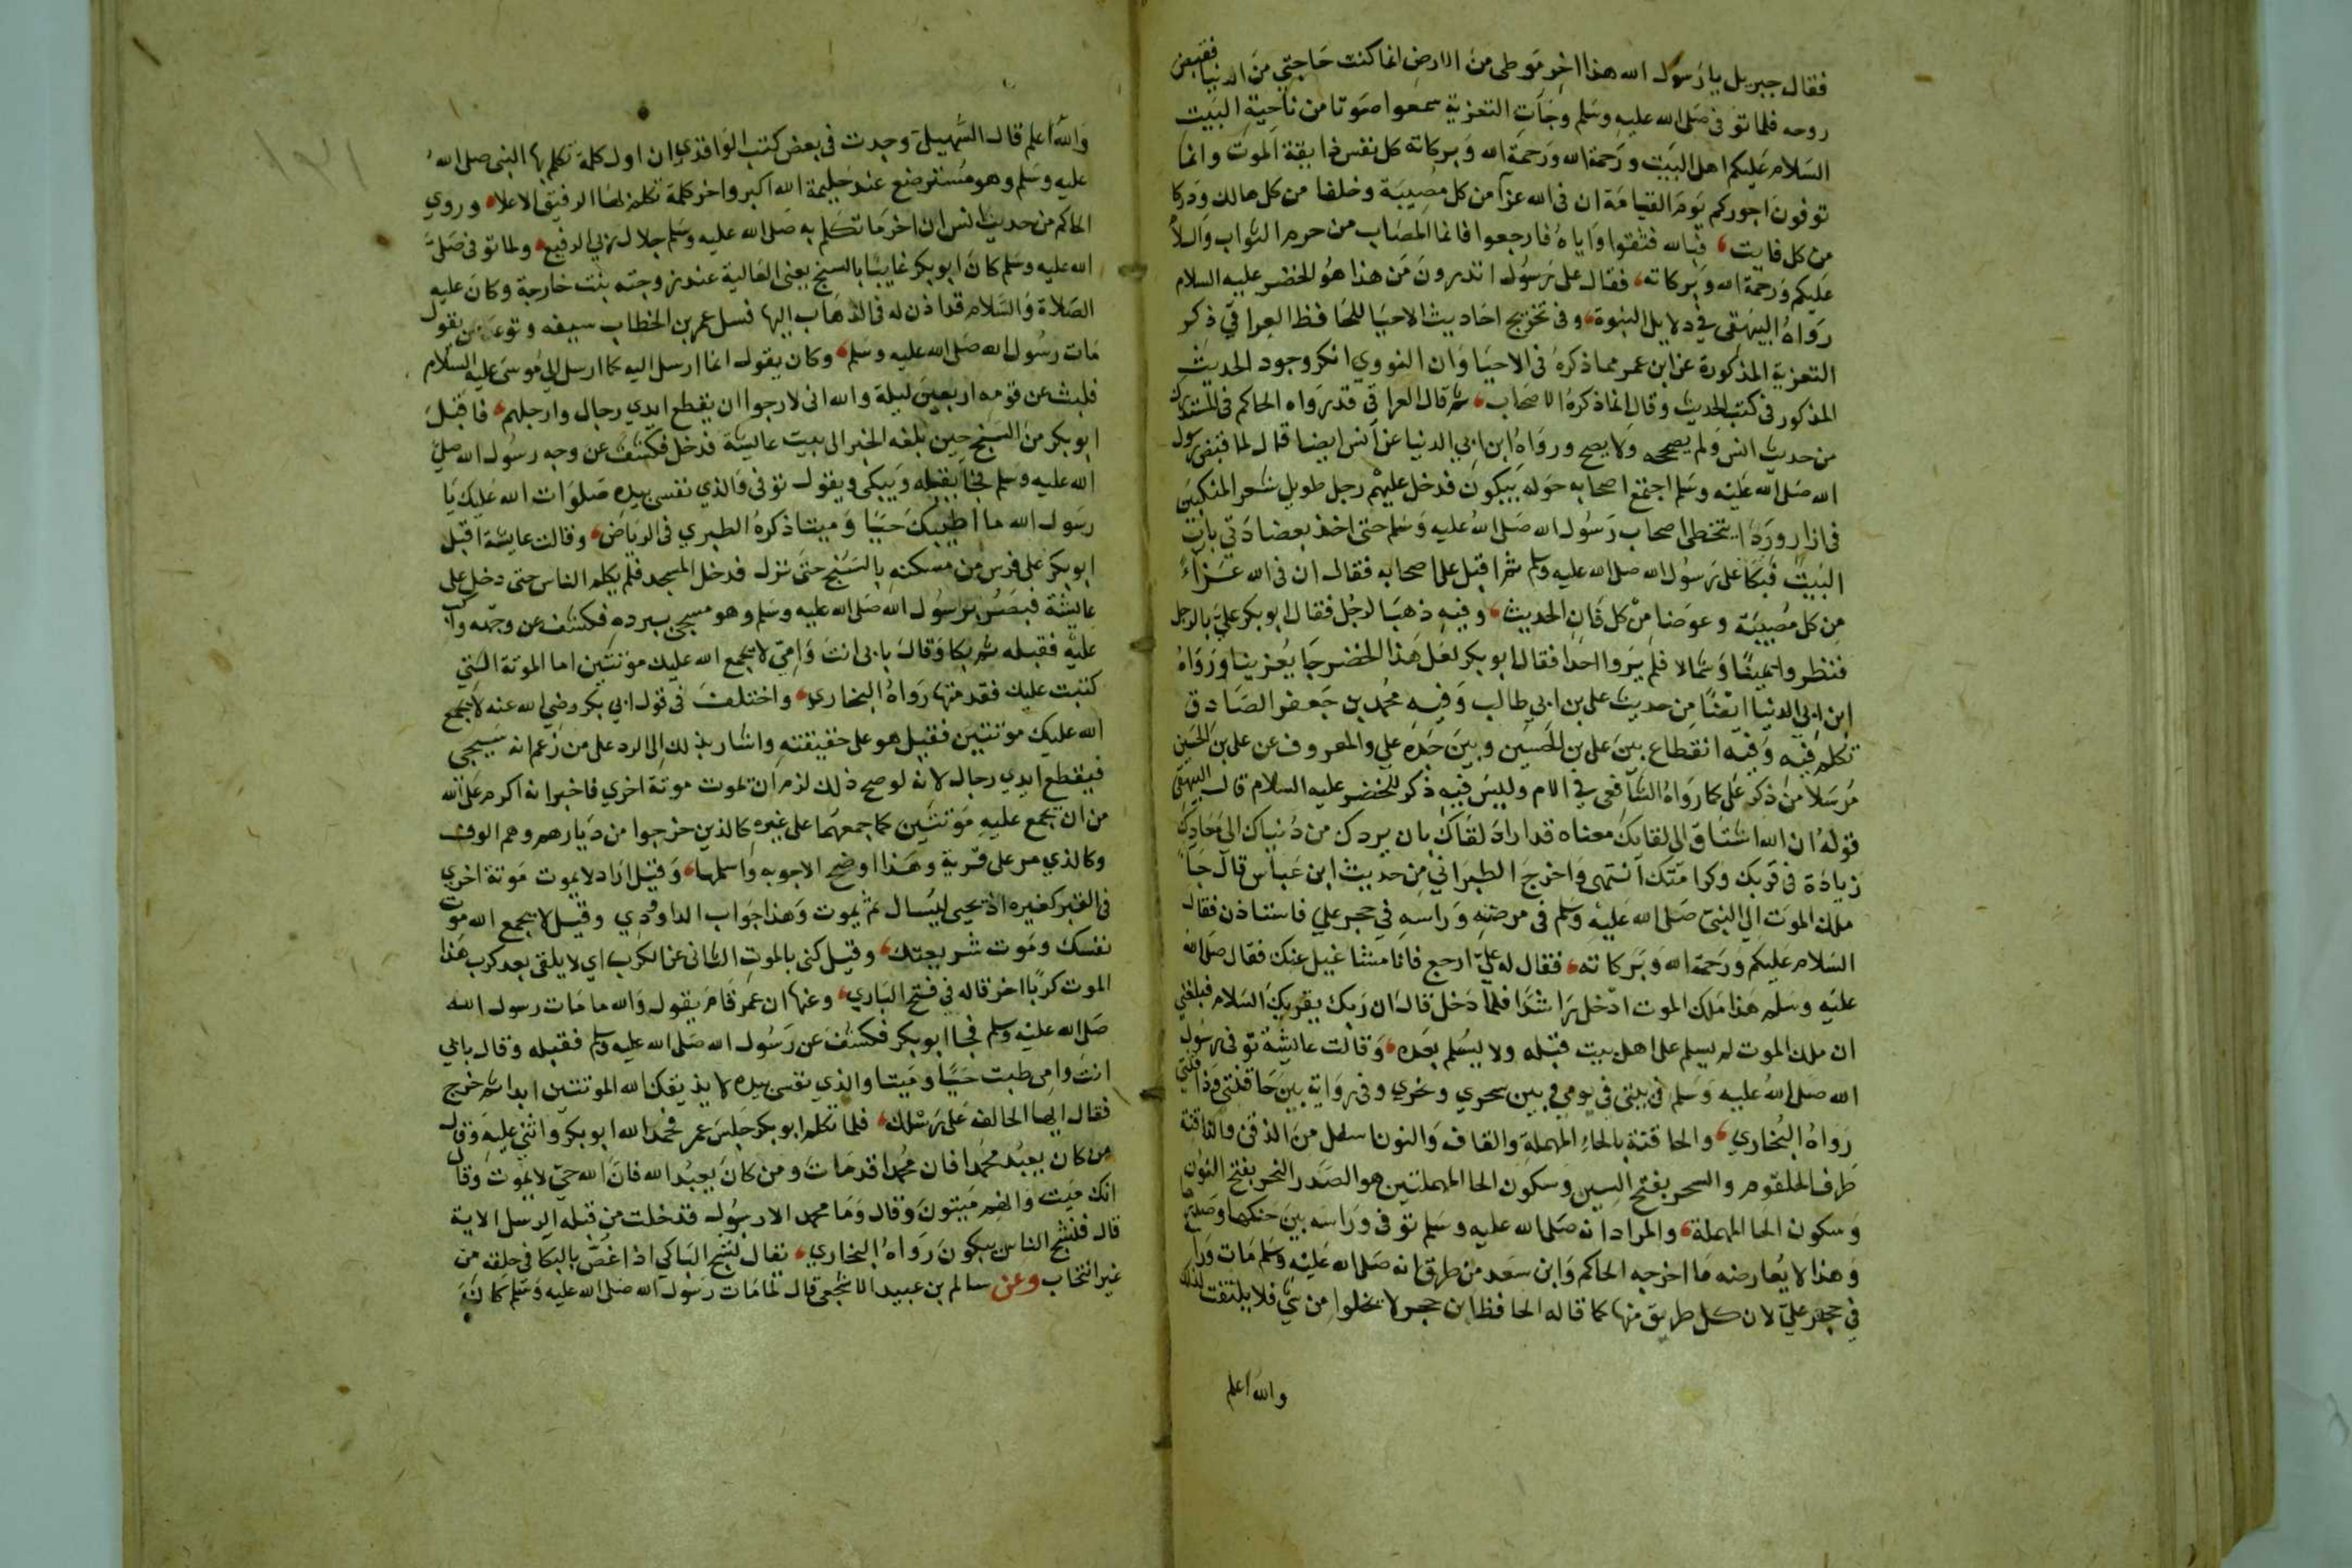 فقال جبريل يا رسول الله هذا اخر موطى من الارض انما كنت حاجتي من الدنيا فقبض
روحه فلما توفى صلى الله عليه وسلم وجآت التعزية سمعوا صوتا من ناحية البيت
السلام عليكم اهل البيت ورحمة الله ورحمة الله وبركاته كل نفس ذايقة الموت وانما
توفون اجوركم يوم القيامة ان فى الله عزآ من كل مصيبة وخلفا من كل هالك ودركا
من كل فايت فبالله فثقوا واياه فارجعوا فانما المصاب من حرم الثواب والسلام
عليكم ورحمة الله وبركاته فقال على رسول اتدرون من هذا هو الخضر عليه السلام
رواه البيهقي في دلايل النبوة وفى تخريج احاديث الاحيا للحافظ العراقي ذكر
التعزية المذكورة عن ابن عمر مما ذكره فى الاحيا وان النووي انكر وجود الحديث
المذكور فى كتب الحديث وقال انما ذكره الاصحاب ثم قال العراقى قد رواه الحاكم فى المستدرك
من حديث انس ولم يصححه ولا يصح ورواه ابن ابي الدنيا عن انس ايضا قال لما قبض رسول
الله صلى الله عليه وسلم اجتمع اصحابه حوله يبكون فدخل عليهم رجل طويل شعر المنكبين
فى ازار وردا يتخطى اصحاب رسول الله صلى الله عليه وسلم حتى اخذ بعضادتي باب
البيت فبكا على رسول الله صلى الله عليه وسلم ثم اقبل على اصحابه فقال ان فى الله عزآء
من كل مصيبة وعوضا من كل فان الحديث وفيه ذهب الرجل فقال ابو بكر علي بالرجل
فنظروا يمينا وشمالا فلم يروا احدا فقال ابو بكر لعل هذا الخضر جا يعزينا ورواه
ابن ابي الدنيا ايضا من حديث على بن ابي طالب وفيه محمد بن جعفر الصادق
تكلم فيه وفيه انقطاع بين على بن الحسين وبين جده علي والمعروف عن على بن الحسين
مرسلا من ذكر على كما رواه الشافعى في الام وليس فيه ذكر للخضر عليه السلام قال البيهقي
قوله ان الله اشتاق الى لقايك معناه قد اراد لقاك بان يردك من دنياك الى معادك
زيادة فى قربك وكرامتك انتهى واخرج الطبراني من حديث ابن عباس قال جا
ملك الموت الى النبي صلى الله عليه وسلم فى مرضه وراسه في حجر علي فاستاذن فقال
السلام عليكم ورحمة الله وبركاته فقال له علي ارجع فانا مشاغيل عنك فقال صلى الله
عليه وسلم هذا ملك الموت ادخل راشدا فلما دخل قال ان ربك يقريك السلام فبلغني
ان ملك الموت لم يسلم على اهل بيت قبله ولا يسلم بعده وقالت عايشة توفى رسول
الله صلى الله عليه وسلم فى بيتى في يومي وبين سحري ونحري وفى رواية بين حاقنتي وذاقنتي
رواه البخاري والحاقنة بالحاء المهملة والقاف والنون اسفل من الذقن والذاقنة
طرف الحلقوم والسحر بفتح السين وسكون الحا المهملتين هو الصدر النحر بفتح النون
وسكون الحا المهملة والمراد انه صلى الله عليه وسلم توفى وراسه بين حنكها وصدرها
وهذا لا يعارضه ما اخرجه الحاكم وابن سعد من طرق انه صلى الله عليه وسلم مات وراسه
في حجر علي لان كل طريق منها كما قاله الحافظ ابن حجر لا يخلوا من شي فلا يلتفت لذلك
والله اعلم
والله اعلم قال السهيلي وجدت فى بعض كتب الواقدي ان اول كلمة تكلم بها النبى صلى الله
عليه وسلم وهو مسترضع عند حليمة الله اكبر واخر كلمة تكلم بها الرفيق الاعلا وروي
الحاكم من حديث انس ان اخر ما تكلم به صلى الله عليه وسلم جلال ربي الرفيع ولما توفى صلى
الله عليه وسلم كان ابو بكر غايبا بالسنح يعنى العالية عند زوجته بنت خارجة وكان عليه
الصلاة والسلام قد اذن له فى الذهاب اليها فسل عمر بن الخطاب سيفه وتوعد من يقول
مات رسول الله صلى الله عليه وسلم وكان يقول انما ارسل اليه كما ارسل الى موسى عليه السلام
فلبث عن قومه اربعين ليلة والله انى لارجوا ان يقطع ايدي رجال وارجلهم فاقبل
ابو بكر من السنح حين بلغه الخبر الى بيت عايشة فدخل فكشف عن وجه رسول الله صلى
الله عليه وسلم فجثا يقبله ويبكى ويقول توفى والذي نفسى بيده صلوات الله عليك يا
رسول الله ما اطيبك حيا وميتا ذكره الطبري فى الرياض وقالت عايشة اقبل
ابو بكر على فرس من مسكنه بالسنح حتى نزل فدخل المسجد فلم يكلم الناس حتى دخل على
عايشة فبصر برسول الله صلى الله عليه وسلم وهو مسجى ببرده فكشف عن وجهه واكب
عليه فقبله ثم بكا وقال بابى انت وامي لا يجمع الله عليك موتتين اما الموتة التي
كتبت عليك فقد متها رواه البخاري واختلف فى قول ابي بكر رضي الله عنه لا يجمع
الله عليك موتتين فقيل هو على حقيقته واشار بذلك الى الرد على من زعم انه سيحيى
فيقطع ايدي رجال لانه لو صح ذلك لزم ان تموت موتة اخري فاخبر انه اكرم على الله
من ان يجمع عليه موتتين كما جمعهما على غيره كالذين خرجوا من ديارهم وهم الوف
وكالذي مر على قرية وهذا اوضح الاجوبه واسلمها وقيل اراد لا يموت موتة اخري
فى القبر كغيره اذ يحيى ليسال ثم يموت وهذا جواب الداودي وقيل لا يجمع الله موت
نفسك وموت شريعتك وقيل كنى بالموت الثانى عن الكرب اي لا يلقى بعد كرب هذا
الموت كربا اخر قاله في فتح الباري وعنها ان عمر قام يقول والله ما مات رسول الله
صلى الله عليه وسلم فجا ابو بكر فكشف عن رسول الله صلى الله عليه وسلم فقبله وقال بابي
انت وامى طبت حيا وميتا والذي نفسى بيده لا يذيقك الله الموتتين ابدا ثم خرج
فقال ايها الحالف على رسلك فلما تكلم ابو بكر جلس عمر فحمد الله ابو بكر واثنى عليه وقال
من كان يعبد محمدا فان محمدا قد مات ومن كان يعبد الله فان الله حي لا يموت وقال
انك ميت وانهم ميتون وقال وما محمد الا رسول قد خلت من قبله الرسل الاية
قال فنشج الناس يبكون رواه البخاري يقال نشج الباكي اذا غص بالبكا فى حلقه من
غير انتحاب وعن سالم بن عبيد الاشجعى قال لما مات رسول الله صلى الله عليه وسلم كان